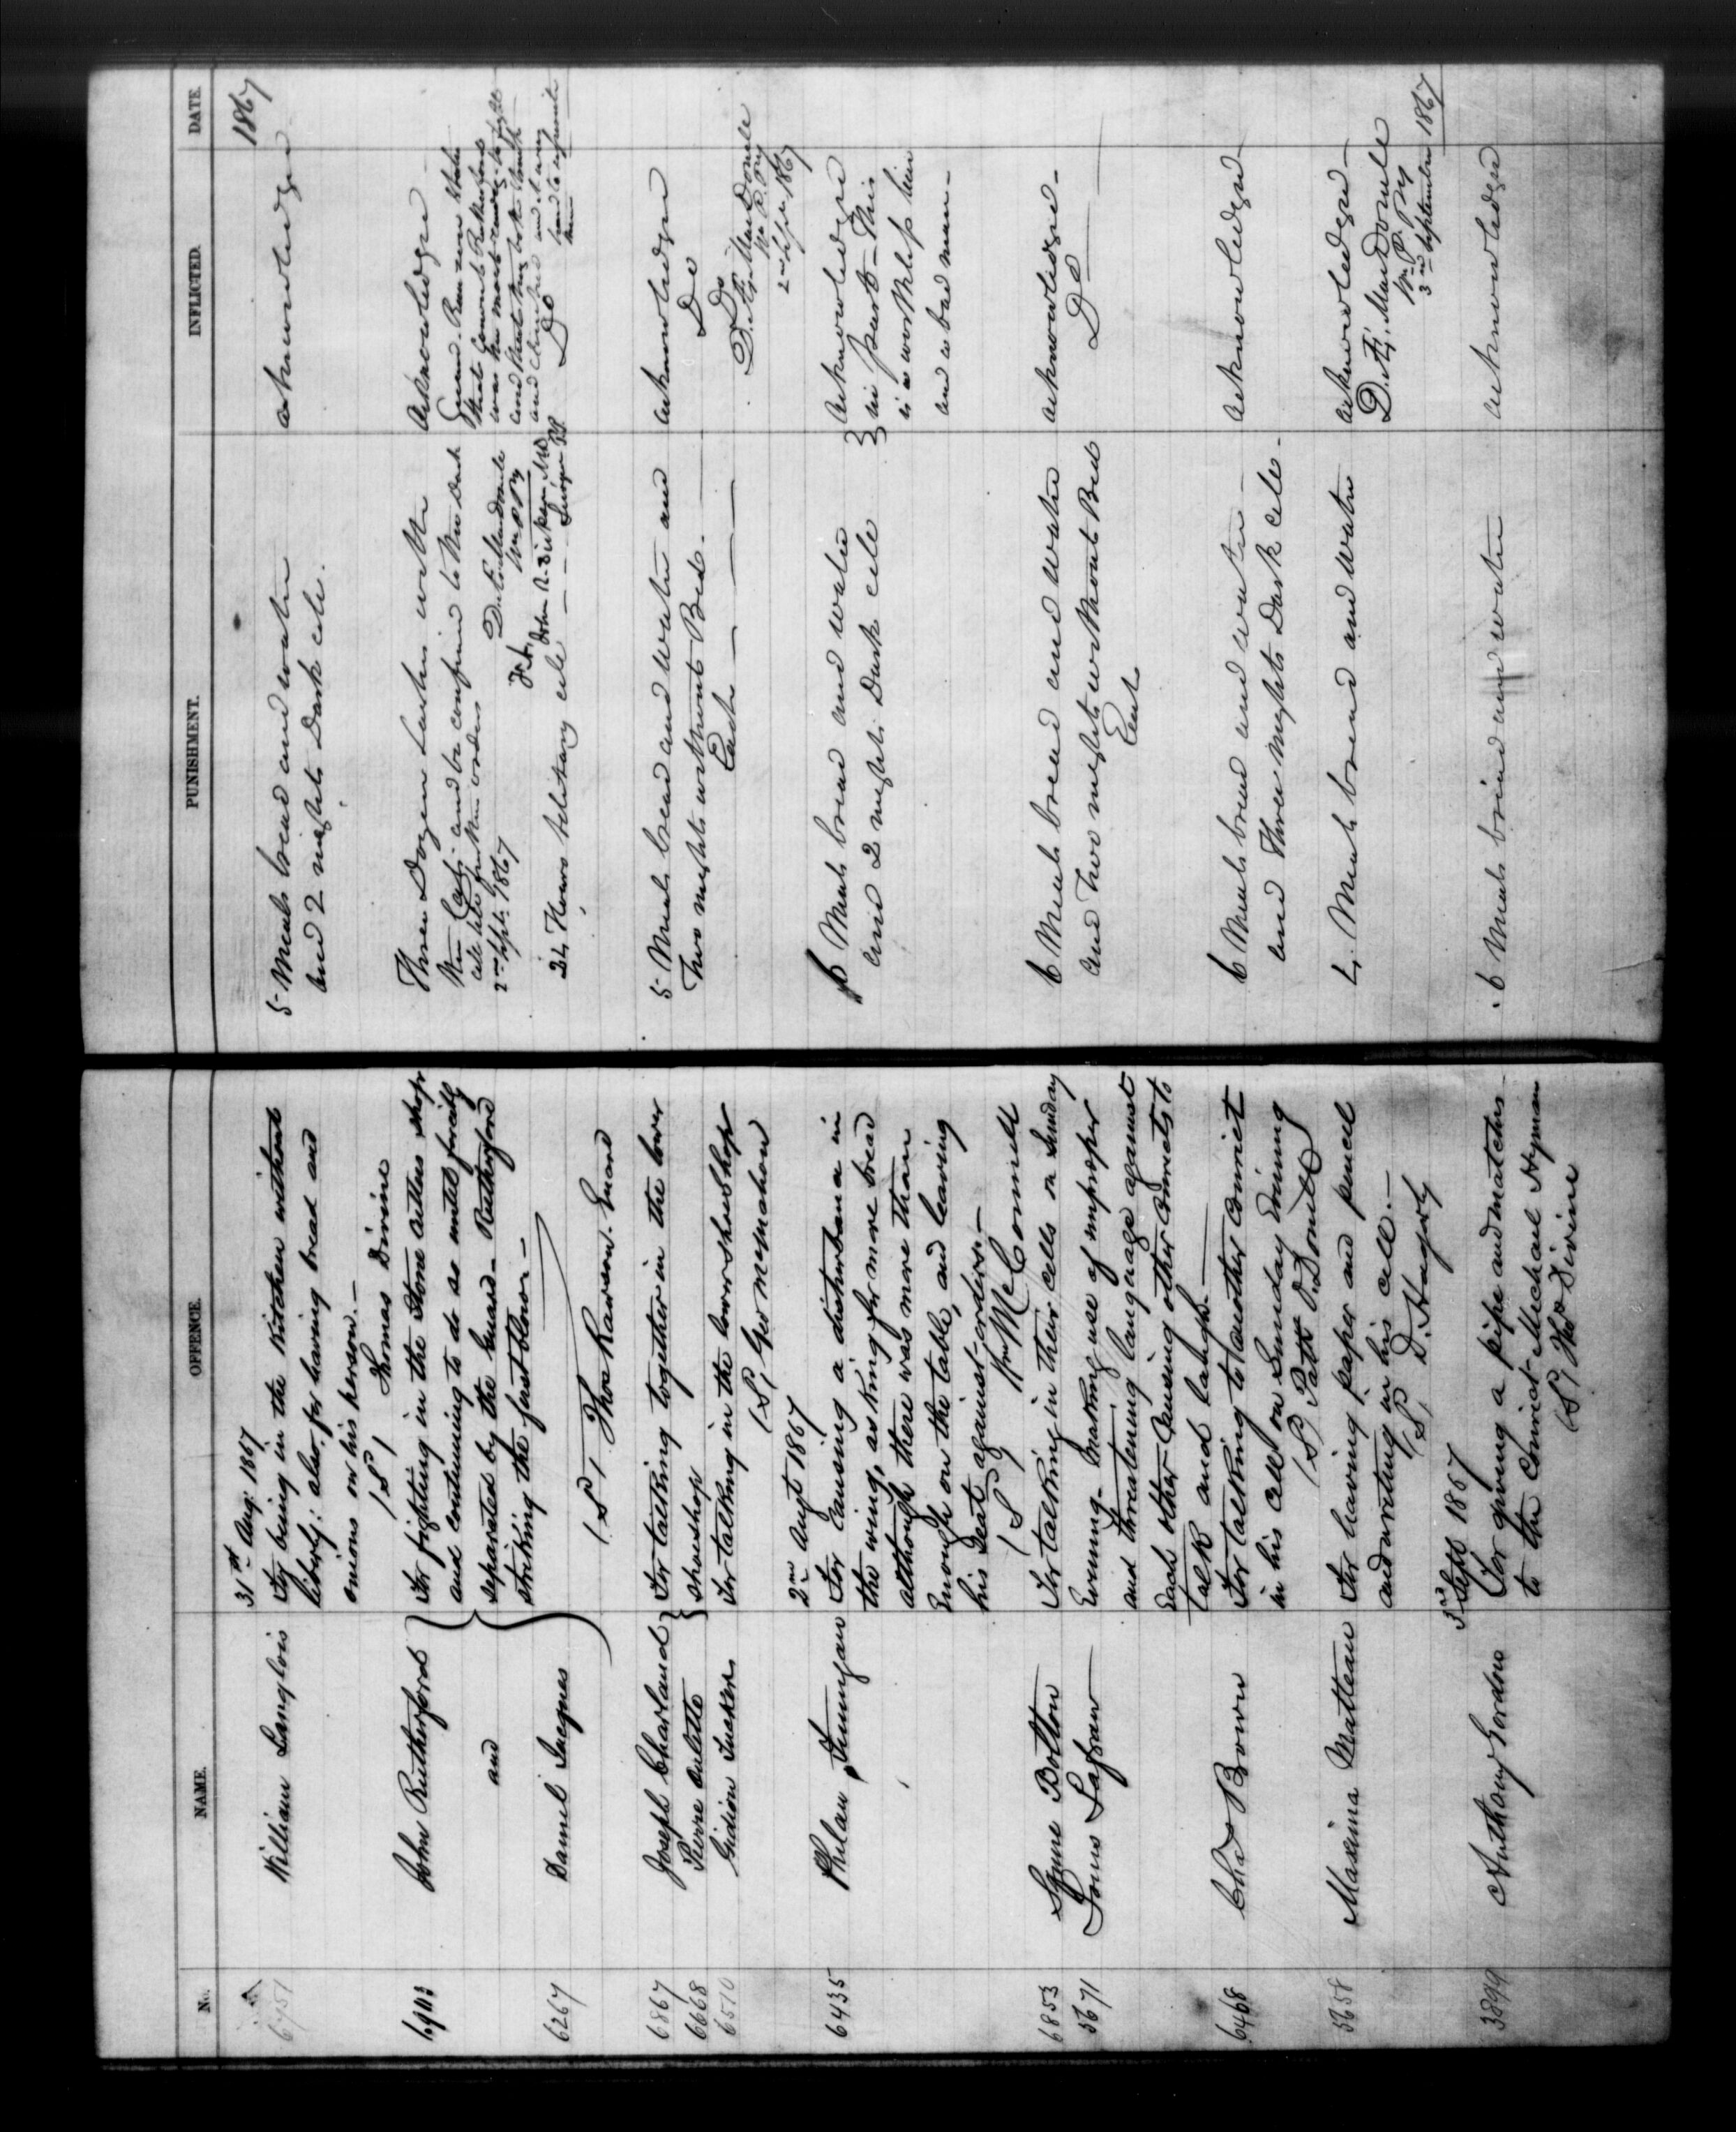 No. NAME. OFFENCE. PUNISHMENT. INFLICTED. DATE.
1867
31st Aug: 1867
6751 William Langlois For being in the Kitchen without
liberty: also, for having bread and
onions on his person.—
(S) Thomas Divine
5 Meals bread and water
and 2 nights Dark cell.
acknowledges
John Rutherford } For fighting in the Stone Cutters Shop
and continuing to do so until forcibly
and
separated by the Guard— Rutherford
striking the first blow—
6267 Daniel Jacques
(S) Thos Rawson. Guard
Three Dozen Lashes with the
Cats and be confined to the Dark
cell
2nd Sept. 1867
John R. Dickson MD
Surgeon PP
24 Hours Solitary cell
Acknowledges
Do
6867 Joseph Charland } For talking together in the lower
6668 Pierre Oulette } shoeshop
6510 Gideon Tucker. For talking in the lower shoe shop
(S) Geo McMahon
5 Meals bread and water and
Two nights without Bed.
Each
acknowledges
Do
Do
D.Æ. MacDonell
W.P.Py
2nd Sepr. 1867
2nd Augt 1867
6435 Phelan Finnigan For causing a disturbance in
the wing, asking for more bread
although there was more than
Enough on the table, and leaving
his seat against orders.—
(S) Wm McConnell
6 Meals bread and water
and 2 nights Dark cell
acknowledges
in part— This
is a worthless liar
and a bad man—
6853 Lynus Bolton
5671 Louis Lafraw
For talking in their cells on Sunday
Evening— Making use of improper
and threatening language against
Each other— Causing other Convicts to
talk and laugh.—
6 Meals bread and water
and Two nights without Bed
Each
acknowledges—
Do
6468 Chas Brown For talking to another Convict
in his cell on Sunday Evening
(S) Patk O'Donnell
6 Meals bread and water—
and Three nights Dark cell.
acknowledges—
5658 Maxima Matteau For having paper and pencil
and writing in his cell.—
(S) D. Hagerty
4 Meals bread and water
acknowledges—
D.Æ. MacDonell
W.P.Py
3rd September 1867
3rd Sept 1867
3899 Anthony Gordon For giving a pipe and matches
to the Convict Michael Hyman
(S) Thos Divine
6 Meals bread and water
acknowledges